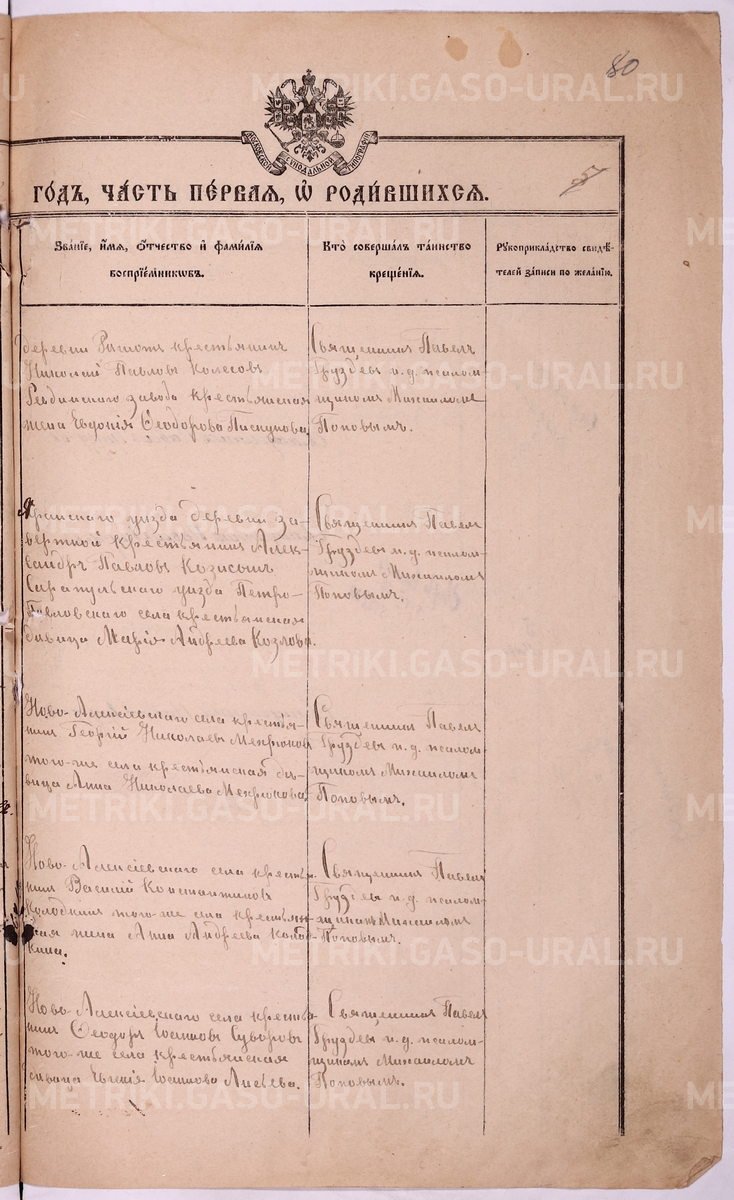 80
МОСКОВСКОЙ СѴНОДАЛЬНОЙ ТИПОГРАФІИ
ГО́ДЪ, ЧА́СТЬ ПЕ́РВАЯ, Ѡ҆ РОДИ́ВШИХСЯ.
5
Зва́нїе, и҆́мя, ѻ҆́тчество и҆ фами́лїя
воспрїе́мниковъ.
Кто̀ соверша́лъ та́инство
креще́нїя.
Рꙋкоприкла́дство свидѣ́-
телей за́писи по жела́нїю.
деревни крестьянинъ
Николай Павловъ Колесовъ
Ревдинскаго завода крестьянская
жена Евдокія Ѳеодорова Пискунова
Священникъ Павелъ
Груздевъ и. д. псалом-
щикомъ Михаиломъ
Поповымъ.
Яранскаго уѣзда деревни За-
вертной крестьянинъ Алек-
сандръ Павловъ
Сарапульскаго уѣзда Петро-
Павловскаго села крестьянская
дѣвица Марія Андреева Козлова.
Священникъ Павелъ
Груздевъ и. д. псалом-
щикомъ Михаиломъ
Поповымъ.
Ново-Алексіевскаго села крестья-
нинъ Георгій Николаевъ Мехронов
того-же села крестьянская дѣ-
вица Анна Николаева Мехронова.
Священникъ Павелъ
Груздевъ и. д. псалом-
щикомъ Михаиломъ
Поповымъ.
Ново-Алексіевскаго села крестья-
нинъ Василій Константиновъ
Колодкинъ того-же села крестьян-
ская жена Анна Андреева Колод-
кина.
Священникъ Павелъ
Груздевъ и. д. псалом-
щикомъ Михаиломъ
Поповымъ.
Ново-Алексіевскаго села крестья-
нинъ Ѳеодоръ Іоанновъ Суворовъ
того-же села крестьянская
дѣвица Евгенія Іоаннова
Священникъ Павелъ
Груздевъ и. д. псалом-
щикомъ Михаиломъ
Поповымъ.
METRIKI.GASO-URAL.RU
METRIKI.GASO-URAL.RU
METRIKI.GASO-URAL.RU
METRIKI.GASO-URAL.RU
METRIKI.GASO-URAL.RU
METRIKI.GASO-URAL.RU
METRIKI.GASO-URAL.RU
METRIKI.GASO-URAL.RU